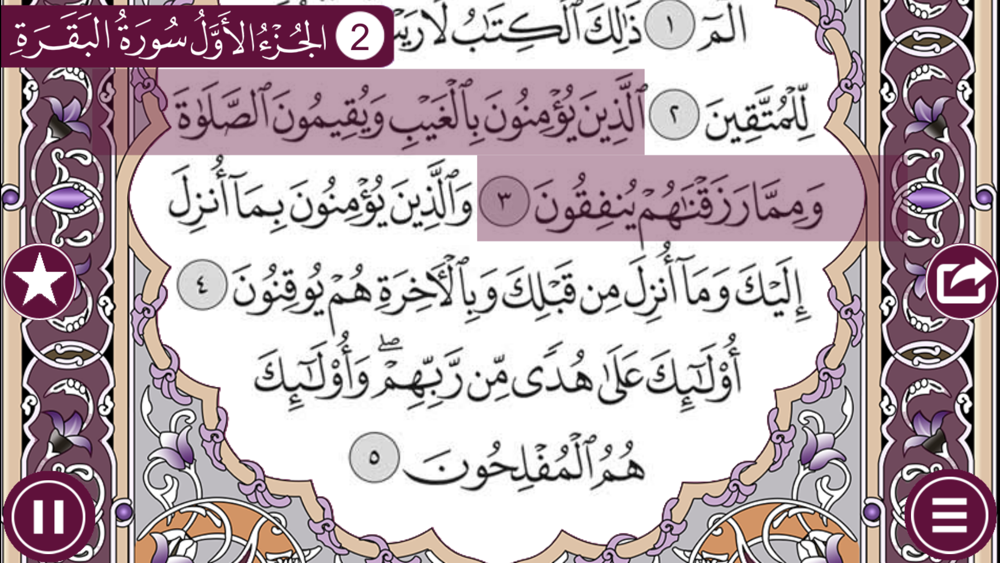 الجُزْءُ الأَوَّلُ سُورَةُ البَقَرَةِ 2
الٓمٓ ١ ذَٰلِكَ ٱلْكِتَٰبُ لَا
لِّلْمُتَّقِينَ ٢ ٱلَّذِينَ يُؤْمِنُونَ بِٱلْغَيْبِ وَيُقِيمُونَ ٱلصَّلَوٰةَ
وَمِمَّا رَزَقْنَٰهُمْ يُنفِقُونَ ٣ وَٱلَّذِينَ يُؤْمِنُونَ بِمَآ أُنزِلَ
إِلَيْكَ وَمَآ أُنزِلَ مِن قَبْلِكَ وَبِٱلْأَخِرَةِ هُمْ يُوقِنُونَ ٤
أُو۟لَٰٓئِكَ عَلَىٰ هُدًى مِّن رَّبِّهِمْ ۖ وَأُو۟لَٰٓئِكَ
هُمُ ٱلْمُفْلِحُونَ ٥